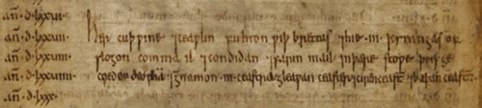 .añ. d.lxxvi.
.añ. d.lxxvii. Her cuþwine ⁊ ceawlin fuhton wiþ brettas ⁊ hie .iii. kyningas of
.añ. d.lxxviii. slogon coinmail ⁊ condidan ⁊ farinmail in þære stowe þe is ge
.añ. d.lxxviiii. cueden deorham ⁊ genamon .iii. ceastro gleawan ceaster ⁊ ciren ceaster ⁊ baþan ceaster
.añ. d.lxxx.